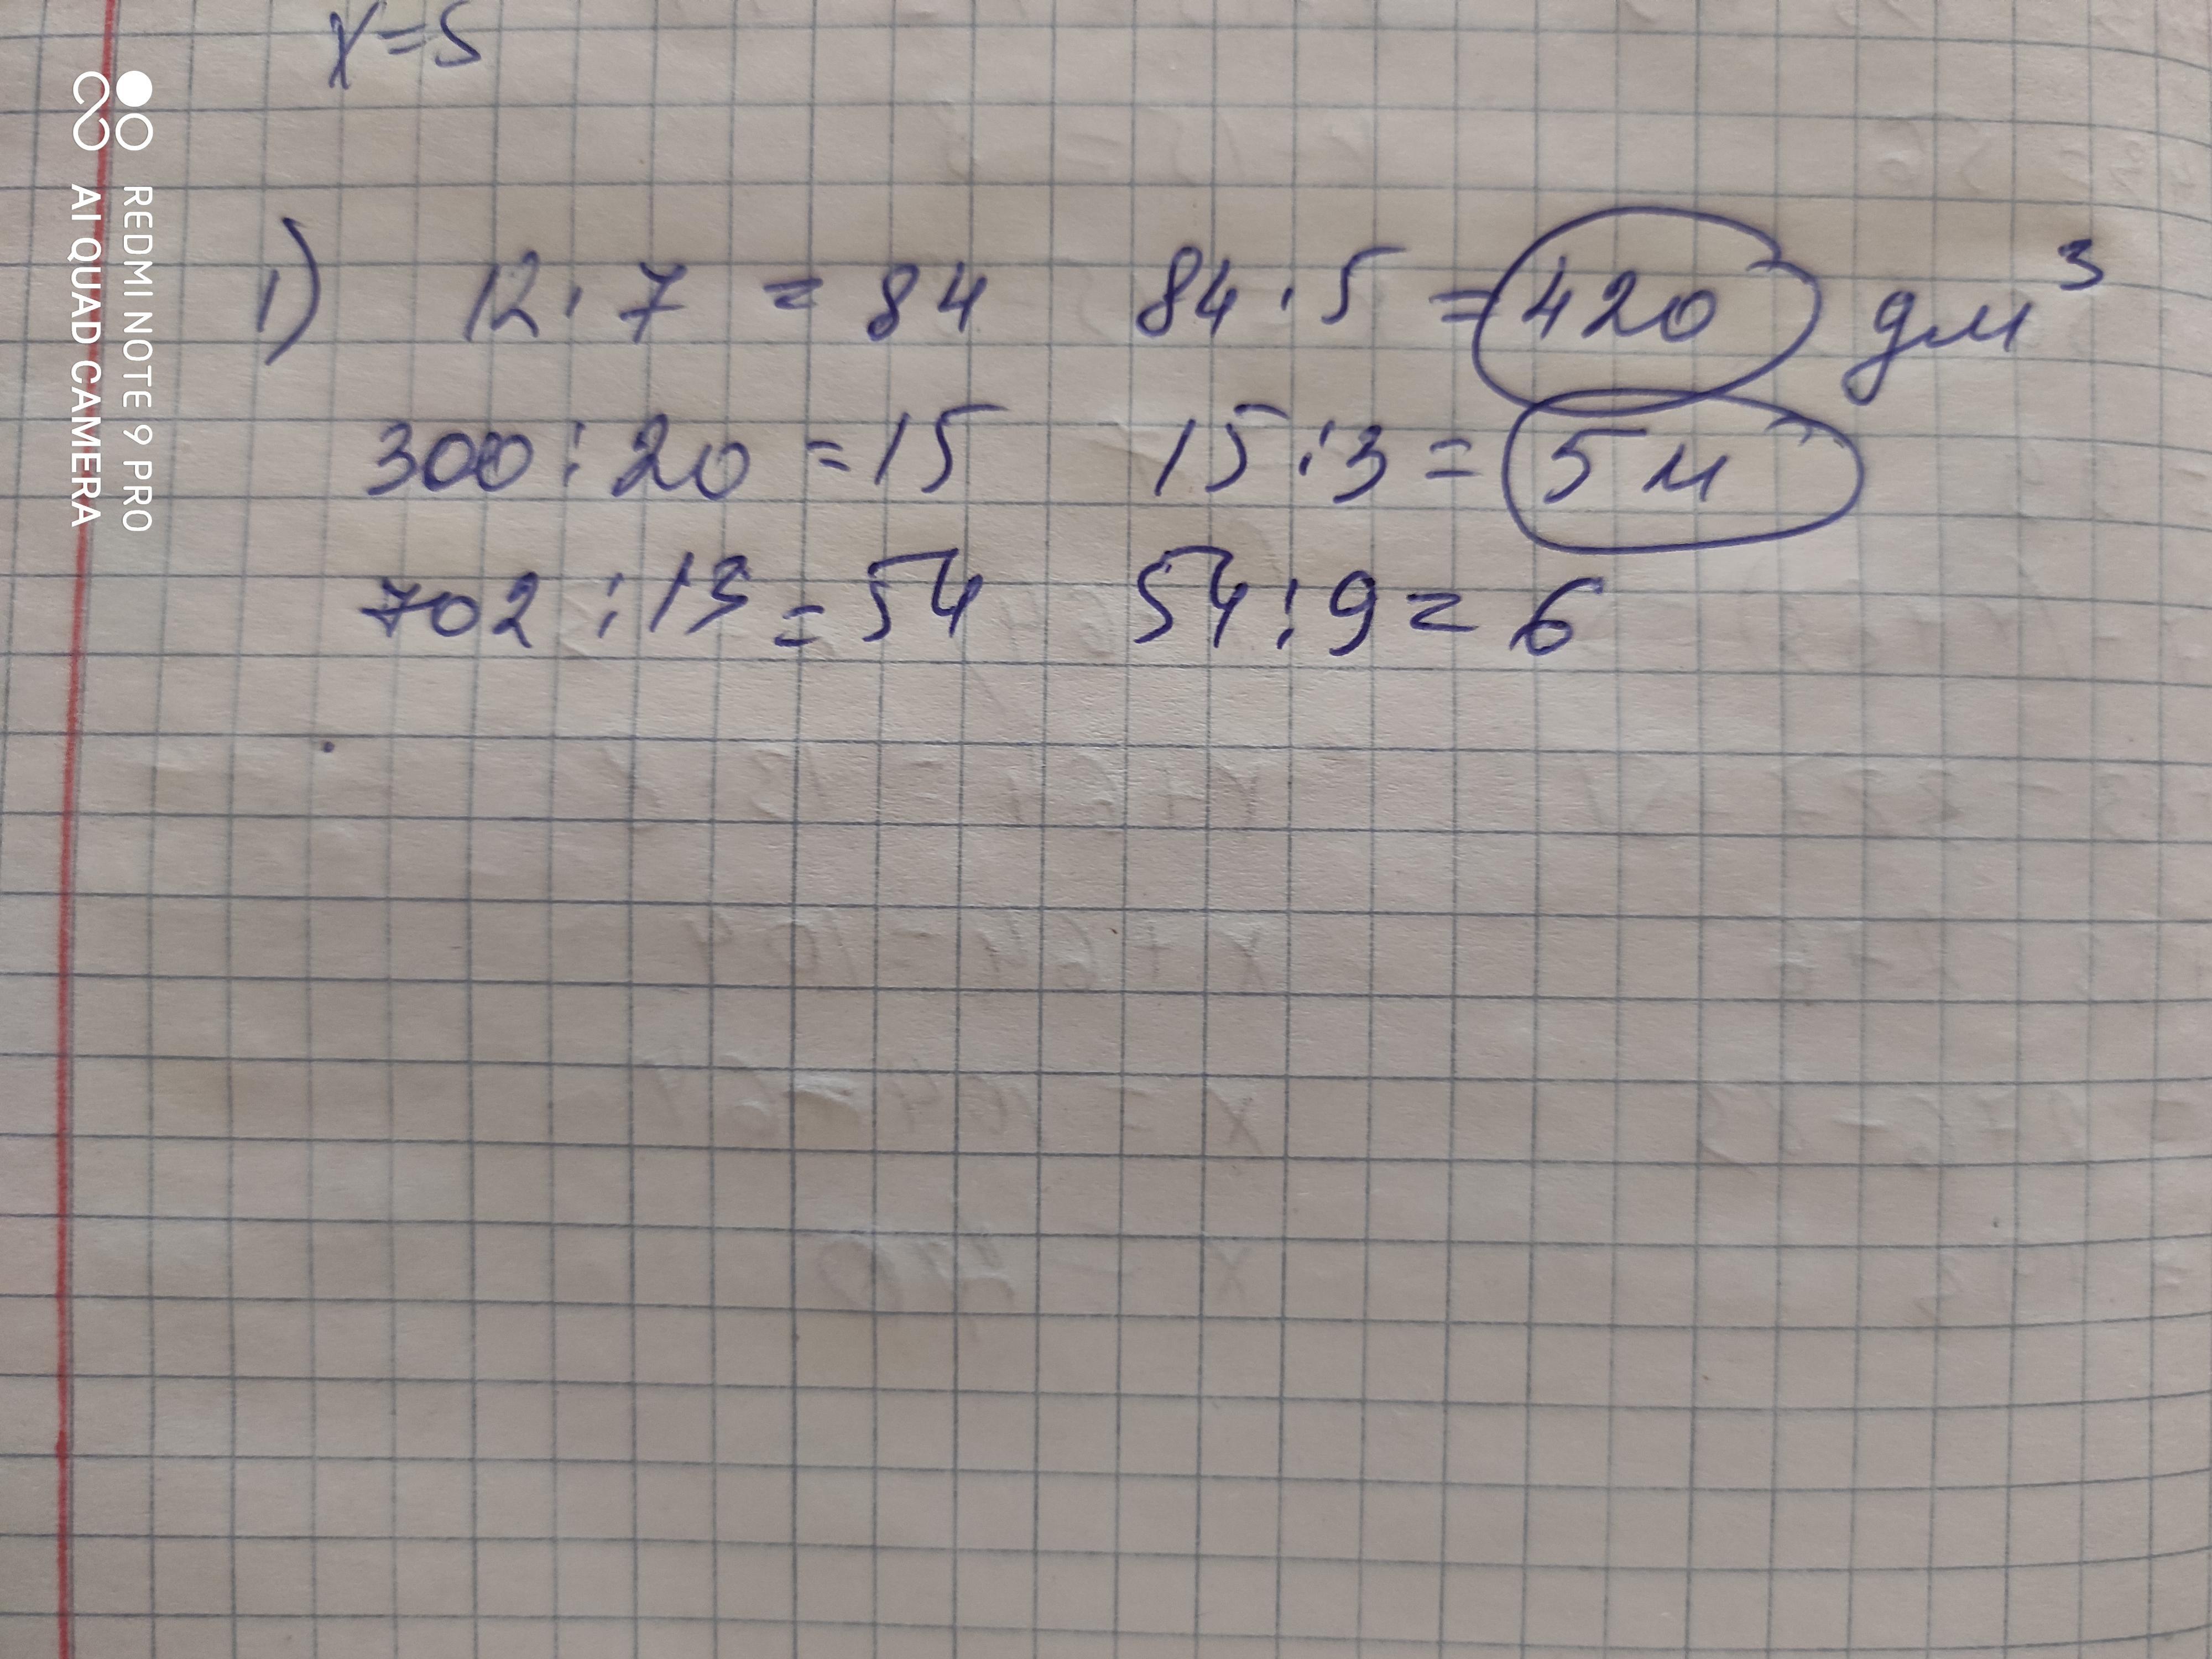 x=5
1) 12 · 7 = 84 84 · 5 = 420 дм³
300 : 20 = 15 15 : 3 = 5 м
702 : 13 = 54 54 : 9 = 6
REDMI NOTE 9 PRO
AI QUAD CAMERA